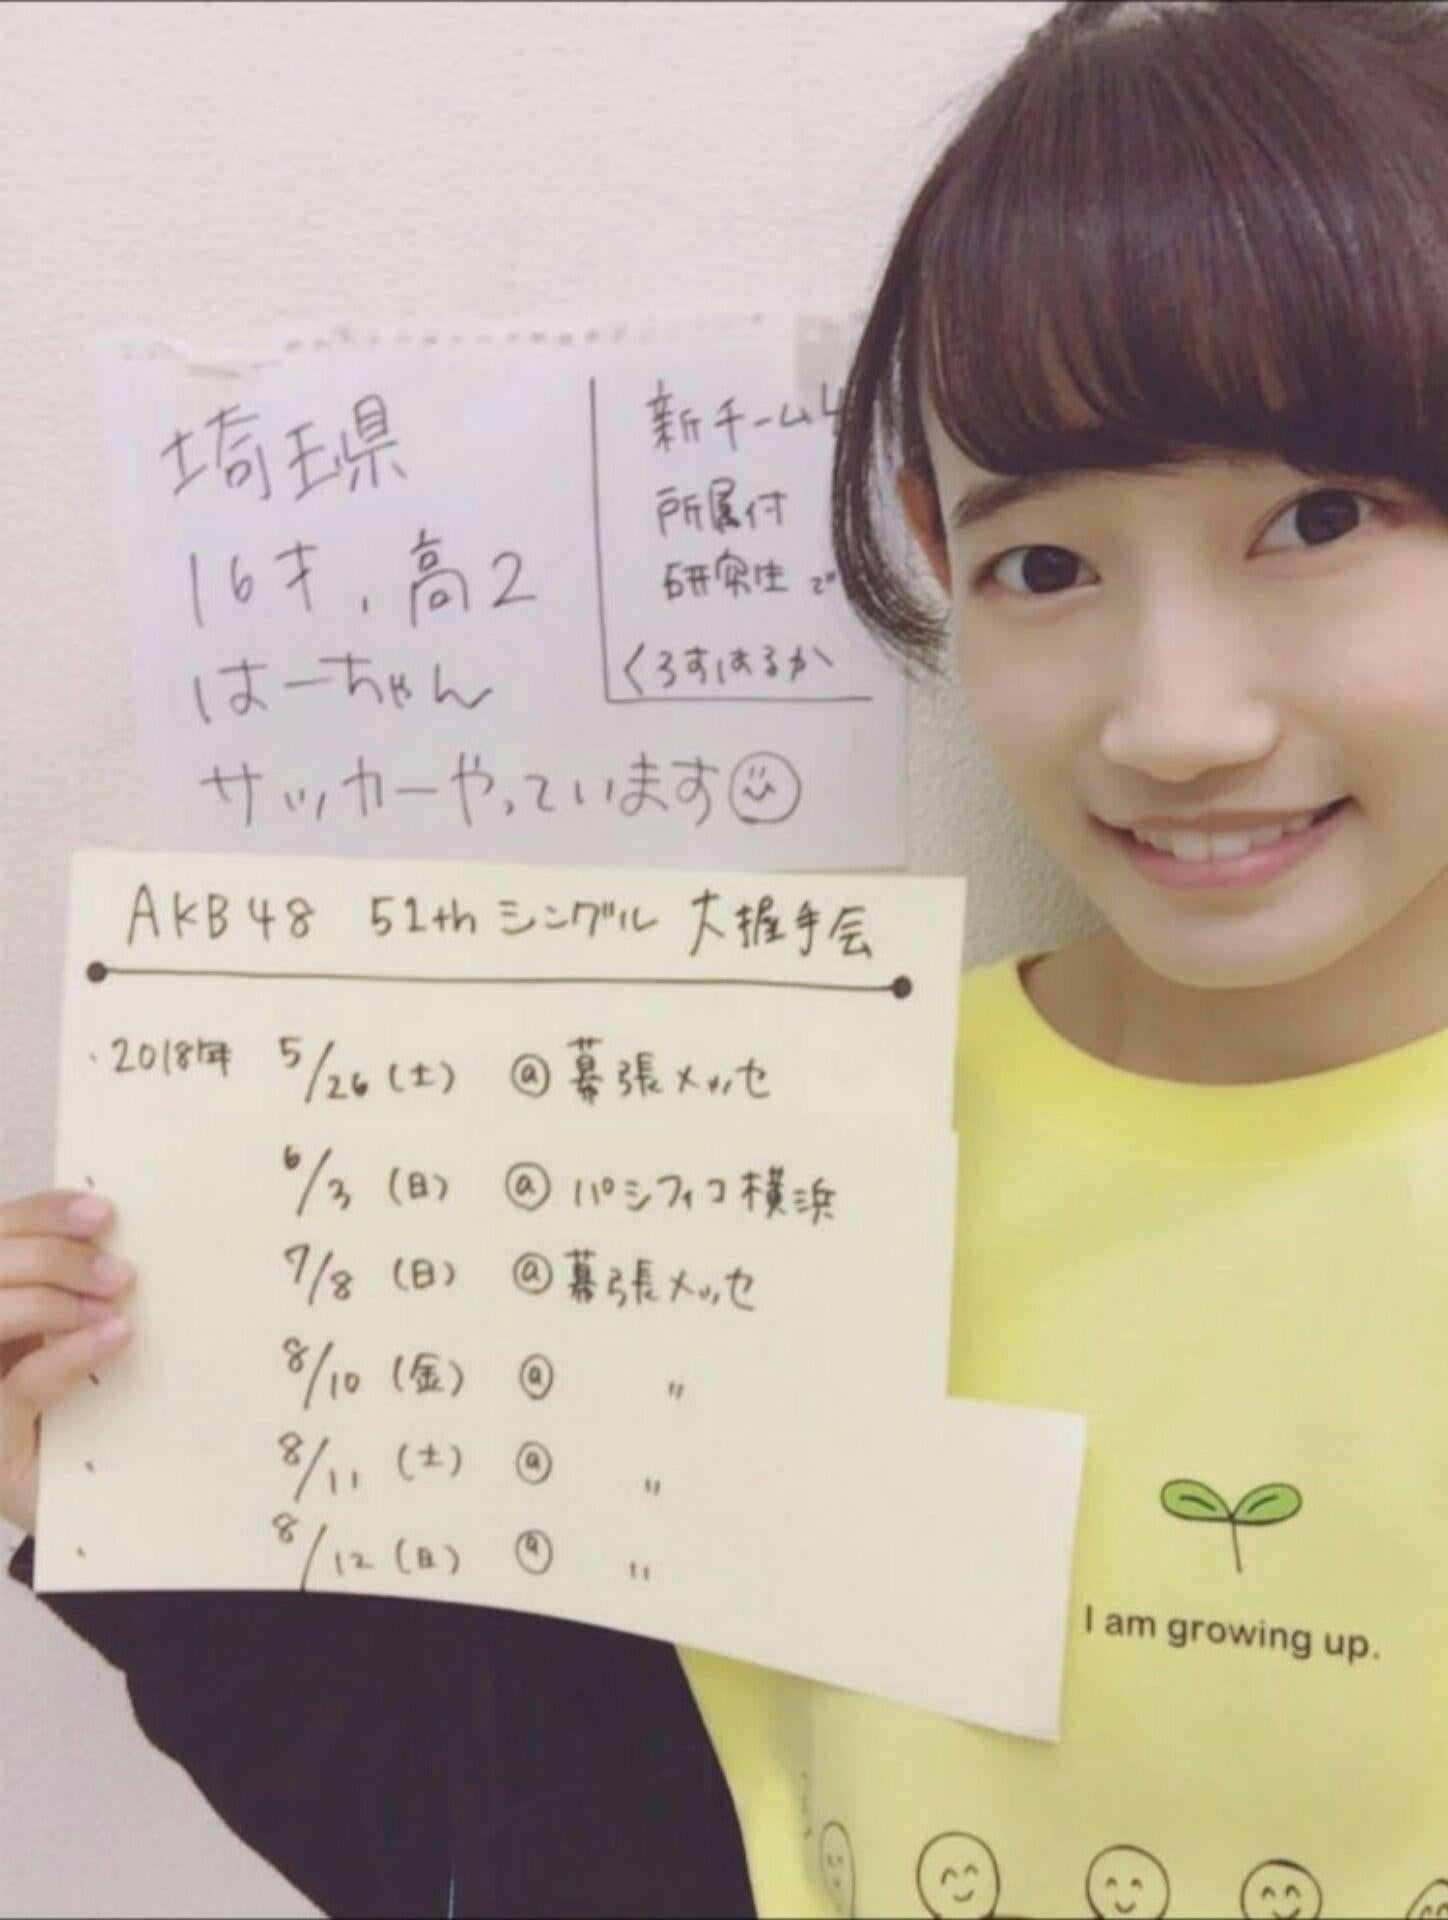 埼玉県
16才、高2
はーちゃん
サッカーやっています
新チーム4
所属付
研究生で
くろすはるか
AKB48 51th シングル 大握手会
・2018年 5/26(土) @幕張メッセ
・ 6/3(日) @パシフィコ横浜
7/8(日) @幕張メッセ
・ 8/10(金) @ 〃
・ 8/11(土) @ 〃
・ 8/12(日) @ 〃
I am growing up.